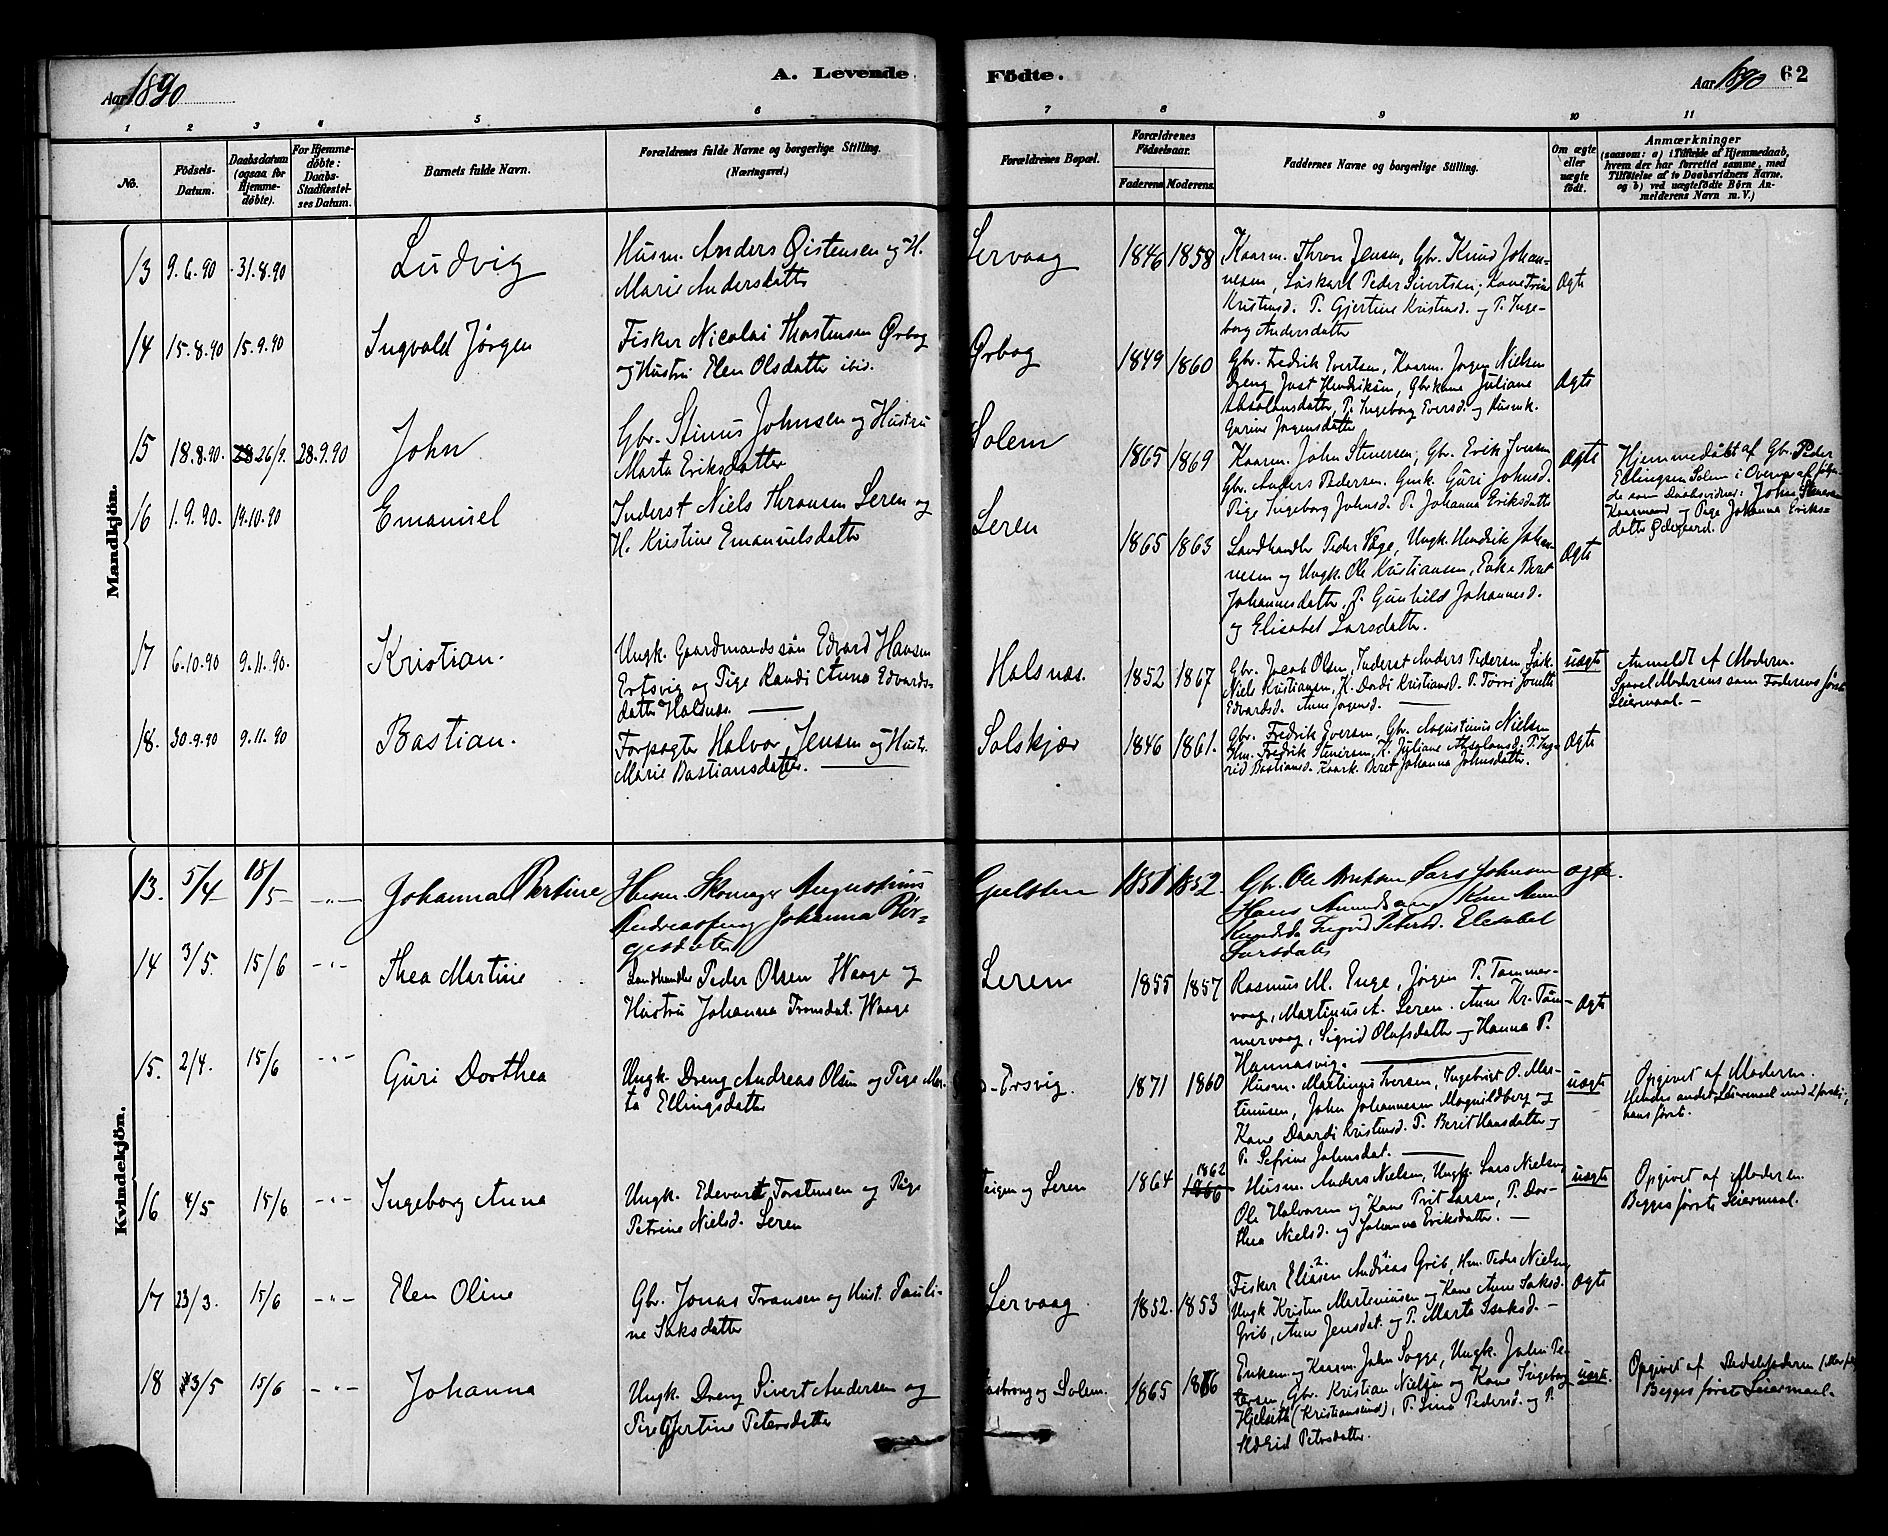 Aar 1890
A. Levende
Födte.
Aar 1890 62
1 2 3 4 5 6 7 8 9 10 11
No.
Födsels-
Datum.
Daabsdatum
(ogsaa for
Hjemme-
døbte).
For Hjemme-
døbte:
Daabs-
Stadfæstel-
ses Datum.
Barnets fulde Navn.
Forældrenes fulde Navne og borgerlige Stilling.
(Næringsvei.)
Forældrenes Bopæl.
Forældrenes
Fødselsaar.
Faderens. Moderens.
Faddernes Navne og borgerlige Stilling.
Om ægte
eller
uægte
født.
Anmærkninger
(saasom: a) i Tilfælde af Hjemmedaab,
hvem der har forrettet samme, med
Tilføielse af to Daabsvidners Navne.
og b) ved uægtefødte Børn An-
melderens Navn m. V.)
Mandkjön.
13 9.6.90 31.8.90
Ludvig
Husm. Anders Øistensen og H.
Marie Andersdatter
Lervaag
1846 1858
Kaarm. Thron Jensen, Gbr. Knud Johan-
nesen, Løskarl Peder Sivertsen, Kone Trine
Kristensd. P. Gjertine Kristensd. og P. Inge-
borg Andersdatter
Ægte
14 15.8.90 15.9.90
Ingvald Jørgen
Fisker Nicolai Thorstensen Ørbog
og Hustru Elen Olsdatter ibid.
Ørbog
1849 1860
Gbr. Fredrik Evertsen, Kaarm. Jørgen Nielsen
Dreng Just Hendriksen, Gbrkone Juliane
Absalonsdatter, P. Ingeborg Eversd. og Husmk.
Gurine Jørgensdatter
Ægte
15 18.8.90. 26/9. 28.9.90
John
Gbr. Stinus Johnsen og Hustru
Marta Eriksdatter
Solem
1865 1869
Kaarm. John Stenersen, Gbr. Erik Iversen
Gbr. Anders Pedersen. Gmk. Guri Johnsd.
Pige Ingeborg Johnsd. P. Johanna Eriksdatter
Ægte
Hjemmedøbt af Gbr. Peder
Ellingsen Solem i Overvær af følgen-
de som Daabsvidner: John Stenersen
Kaarmand og Pige Johanna Eriks-
datter Ødegaard.
16 1.9.90. 19.10.90
Emanuel
Inderst Niels Thronsen Leren og
H. Kristine Emanuelsdatter
Leren
1865 1863
Landhandler Peder Vage, Ungk. Hendrik Johan-
nesen og Ungk. Ole Kristiansen, Enke Beret
Johannesdatter, P. Gunhild Johannesd.
og Elisabet Larsdatter.
Ægte
17 6.10.90 9.11.90.
Kristian.
Ungk. Gaardmandssøn Edvard Hansen
Ertsvig og Pige Randi Anna Edvards-
datter Halsnæs.
Halsnæs.
1852 1867
Gbr. Jacob Olsen, Inderst Anders Pedersen, Løsk.
Niels Kristiansen, K. Dordi Kristiansd. P. Torri Jonette
Edvardsd. Anne Jørgensd.
uægte
Anmeldt af Moderen.
Saavel Moderens som Faderens første
Leiermaal.
18. 30.9.90 9.11.90
Bastian.
Forpagter Halvor Jensen og Hustr.
Marie Bastiansdatter.
Solskjær
1846 1861.
Gbr. Fredrik Eversen, Gbr. Augustinus Nielsen
Hm. Fredrik Stenersen, K. Juliane Absalonsd. P. Ing-
rid Bastiansd. Kaark. Beret Johanna Johnsdatter.
Ægte
Kvindekjön.
13. 5/4 18/5
Johanna Bertine
Husm. Skomager Augustinus
Andreassen og Johanna Bør-
gesdatter
1851 1852.
Gbr. Ole Lars Johnsen
Hans Kone Anne
Knudsd. Ingrid Petersd. Elisabet
Larsdatter
ægte.
14 3/5. 15/6
Thea Martine
Landhandler Peder Olsen Waage og
Hustru Johanna Tronsdat. Waage
Leren
1855 1857
Rasmus M. Enge, Jørgen P. Tømmer-
vaag, Martinus A. Leren. Anne Kr. Tøm-
mervaag, Sigrid Olafsdatter og Hanna P.
Hannasvig.
Ægte
15. 2/4. 15/6
Guri Dorthea
Ungk. Dreng Andreas Olsen og Pige Mar-
ta Ellingsdatter
Ersvig.
1871 1860
Husm. Martinus Iversen, Ingebrigt O. Mar-
tinusen, John Johannesen Magnildberg og
Kone Daardi Kristensd. P. Berit Hansdatter og
P. Sefrine Johnsdat.
uægte
Opgivet af Moderen.
Hendes andet Leiermaal med 2 forskj.,
hans først.
16 4/5 15/6
Ingeborg Anna
Ungk. Edevart Torstensen og Pige
Petrine Nielsd. Leren
og Leren
1864 1862 1866
Husm. Anders Nielsen, Ungk. Lars Nielsen
Ole Halvorsen og Kone Brit Larsen, P. Dor-
thea Nielsd. og Johanna Eriksdatter.
uægte
Opgivet af Moderen.
Begges første Leiermaal.
17 23/3. 15/6
Elen Oline
Gbr. Jonas Transen og Hust. Pauli-
ne Saksdatter
Lervaag
1852. 1853
Fisker Eliasen Andreas Grib, Hm. Peder Nielsen
Ungk. Kristen Marteniusen og Kone Anne Saksd.
Grib, Anne Jensdat. og P. Marta Isaksd.
Ægte
18 3/5 15/6
Johanna
Ungk. Dreng Sivert Andersen og
Pige Gjertine Petersdatter
og Solem.
1865 1866
Enkem. og Kaarm. John Sogge, Ungk. John Pe-
tersen, Gbr. Kristian Nielsen og Kone Ingeborg
Hjelseth (Kristiansund), P. Lina Pedersd. og P.
Petersdatter.
uægt.
Opgivet af
Begges først Leiermaal.